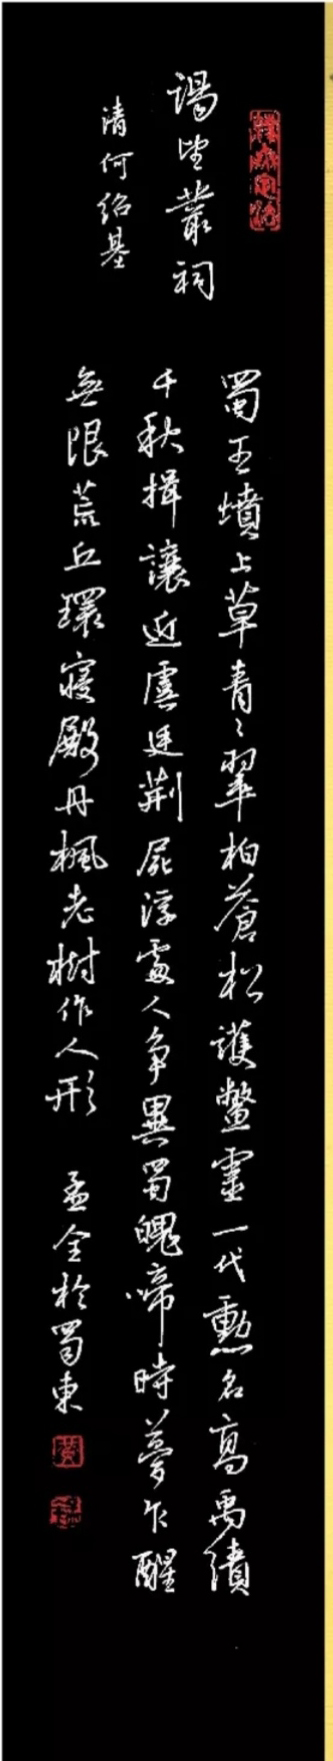 謁望叢祠
清何紹基
蜀王墳上草青青翠柏蒼松護鱉靈一代勳名高禹績
千秋揖讓近虞廷荊屍浮處人爭異蜀魄啼時夢乍醒
無限荒丘環寢殿丹楓老樹作人形
孟全於蜀東